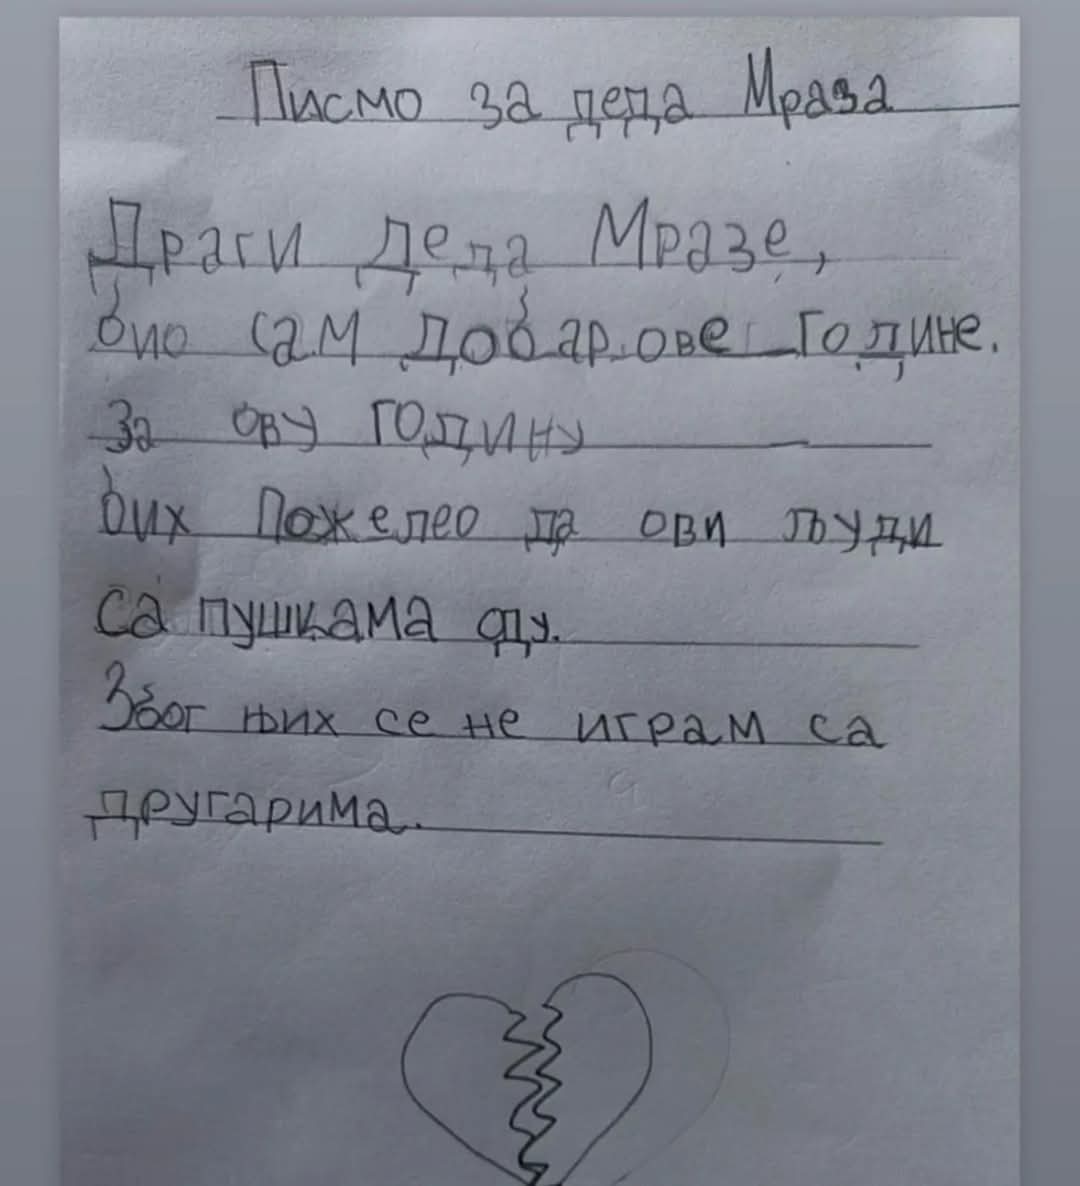 Писмо за деда Мраза
Драги деда Мразе,
био сам добар ове године.
За ову годину
бих пожелео да ови људи
са пушкама оду.
Због њих се не играм са
другарима.